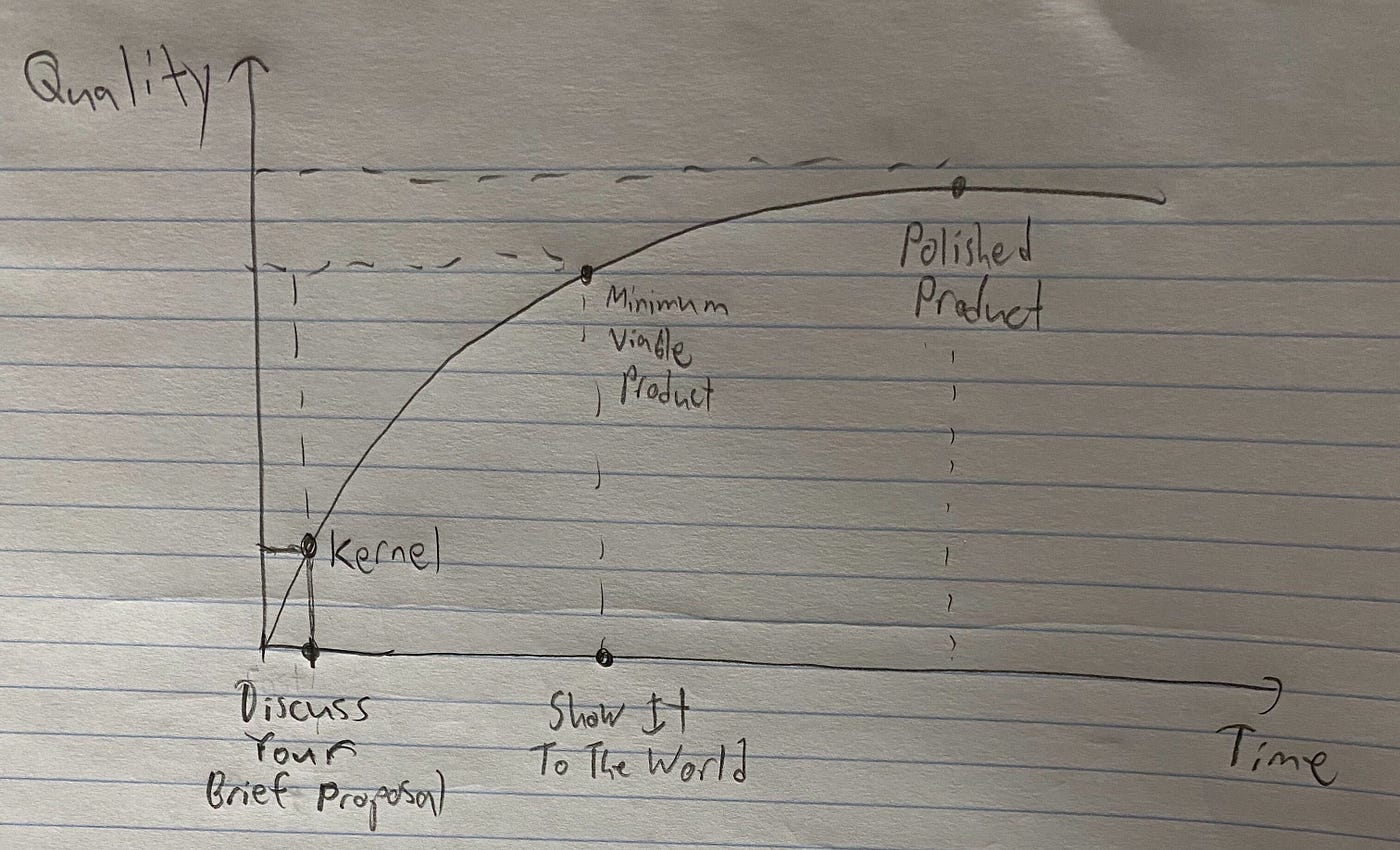 Quality
Polished
Product
Minimum
Viable
Product
Kernel
Discuss
Your
Brief Proposal
Show It
To The World
Time